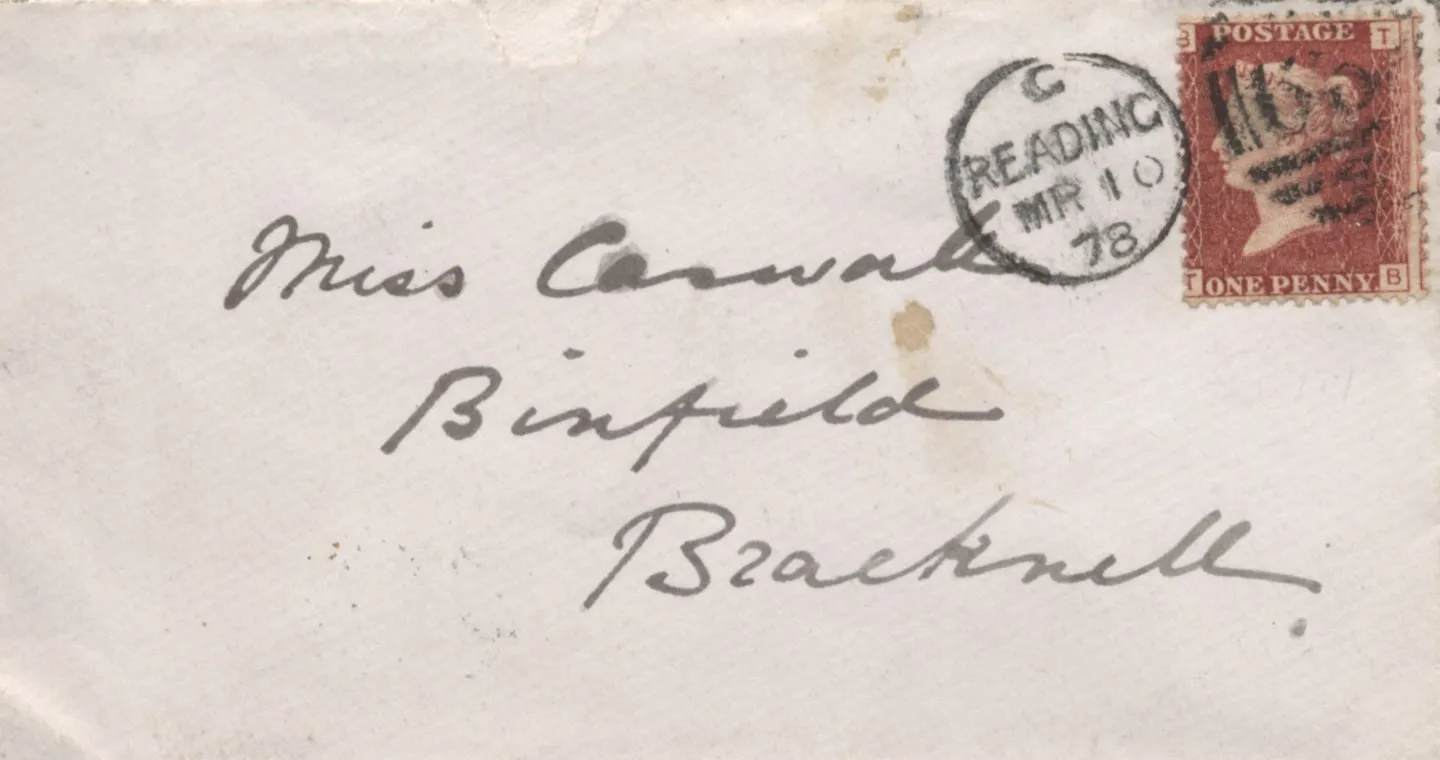 C
READING
MR 10
78
B POSTAGE T
T ONE PENNY. B
Miss Caswall
Binfield
Bracknell.